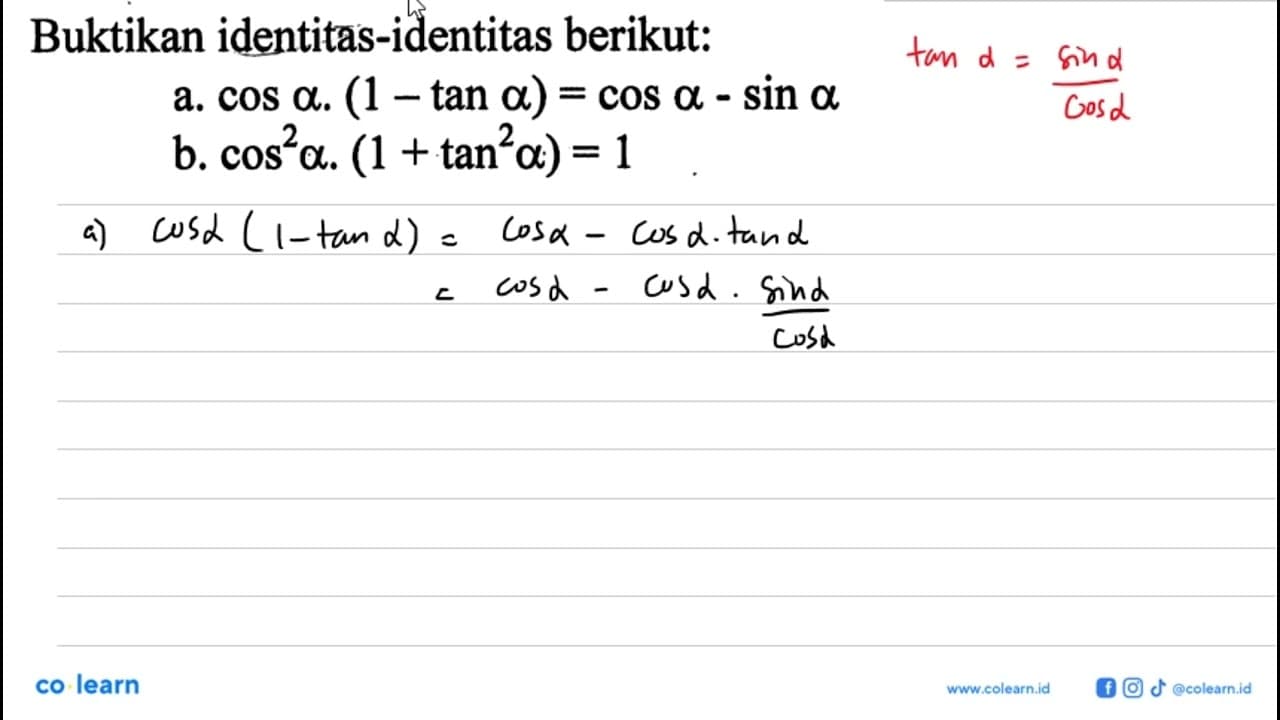 Buktikan identitas-identitas berikut:
a. cos α. (1 – tan α) = cos α - sin α
b. cos²α. (1 + tan²α) = 1
tan α = sin α / cos α
a) cos α (1 – tan α) = cos α – cos α . tan α
= cos α – cos α . sin α / cos α
co learn
www.colearn.id
@colearn.id